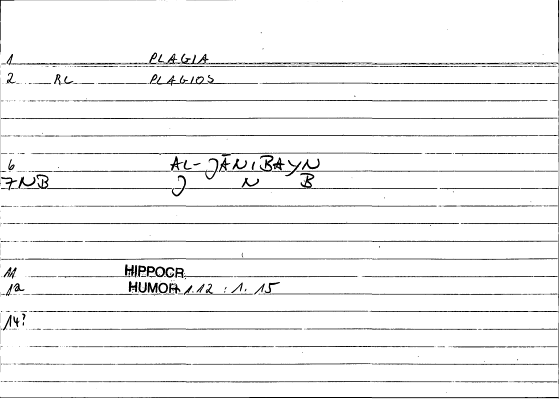 1 PLAGIA
2 RL PLAGIOS
6 AL-JĀNIBAYN
7NB J N B
11 HIPPOCR
12 HUMOR 1.12 : 1.15
14?